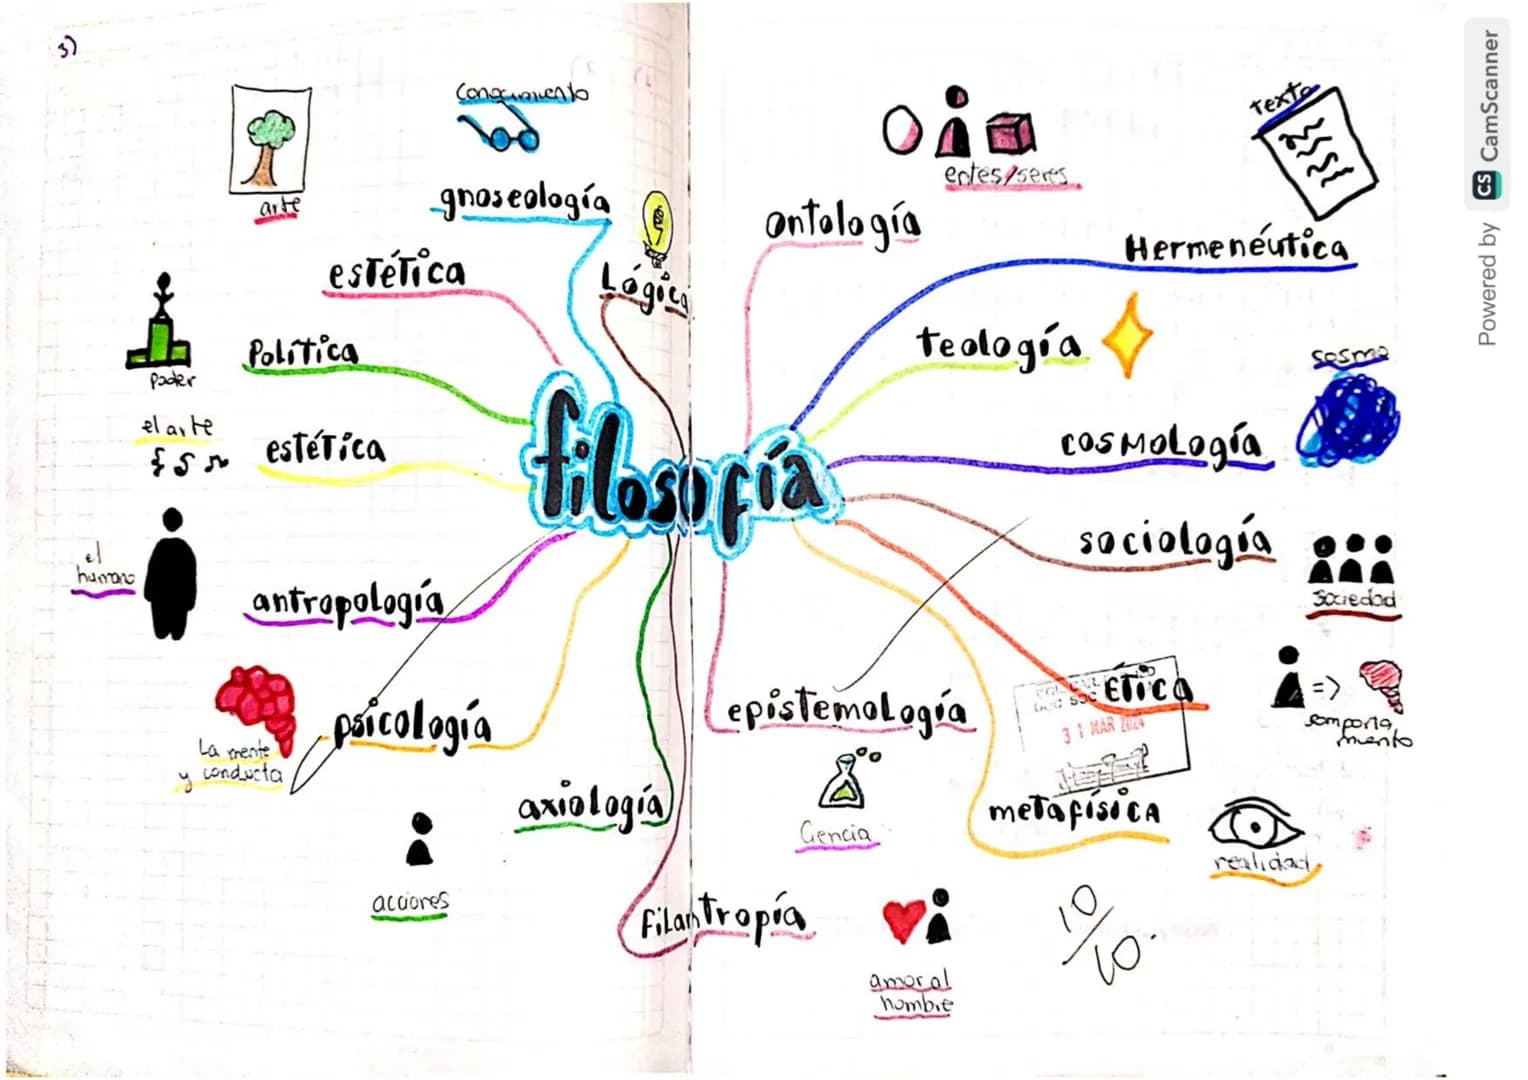 3)
arte
conocimiento
gnoseología
estética
Lógica
Política
poder
el arte
estética
el
humano
antropología
La mente
y conducta
psicología
axiología
acciones
filosofía
entes/seres
ontología
texto
Hermenéutica
teología
cosmo
cosmología
sociología
sociedad
ETICA
comporta
miento
31 MAR 2024
epistemología
Ciencia
metafísica
realidad
filantropía
amor al
hombre
10/10.
Powered by CS CamScanner